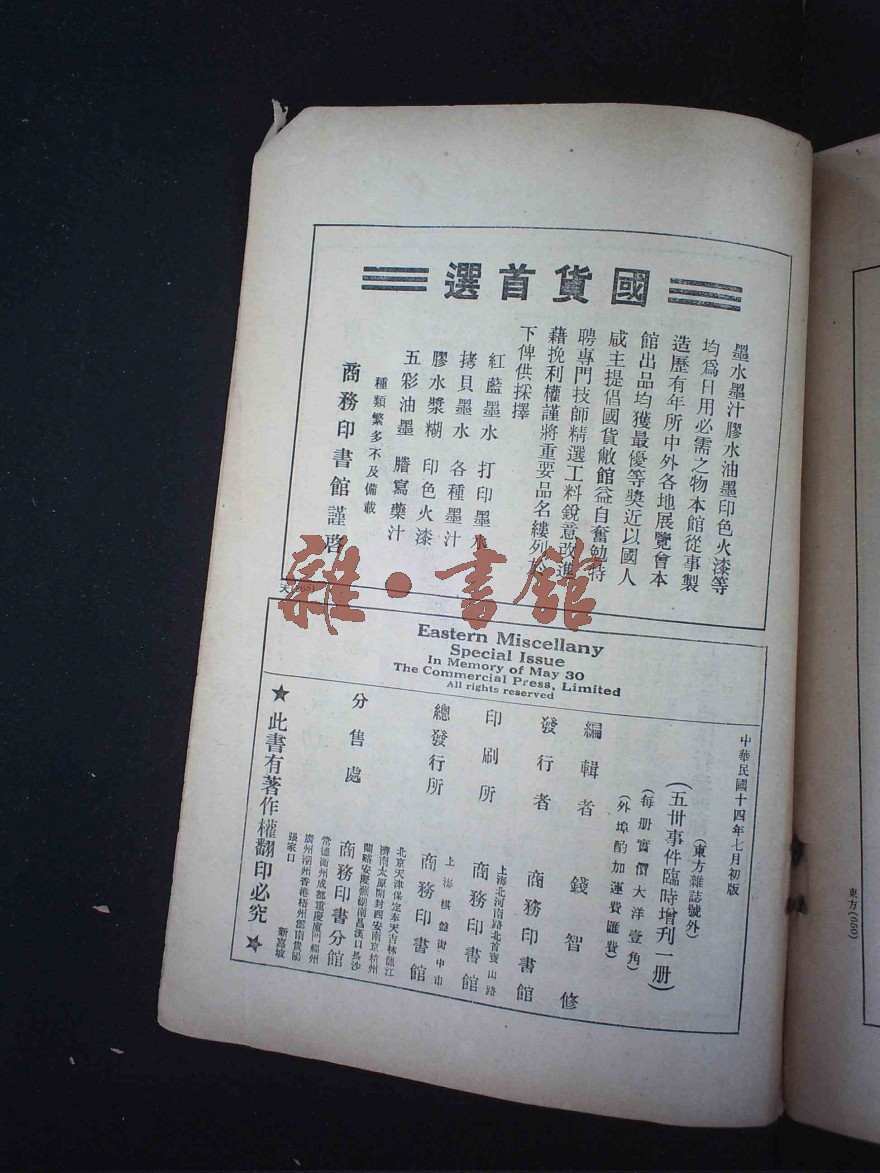 國貨首選
墨水墨汁膠水油墨印色火漆等
均爲日用必需之物本館從事製
造歷有年所中外各地展覽會本
館出品均獲最優等奬近以國人
咸主提倡國貨敝館益自奮勉特
聘專門技師精選工料銳意改進
藉挽利權謹將重要品名縷列
下俾供採擇
紅藍墨水 打印墨水
拷貝墨水 各種墨汁
膠水漿糊 印色火漆
五彩油墨 謄寫藥汁
種類繁多不及備載
商務印書館謹啓
雜·書館
Eastern Miscellany
Special Issue
In Memory of May 30
The Commercial Press, Limited
All rights reserved
中華民國十四年七月初版
(東方雜誌號外)
(五卅事件臨時增刊一册)
(每册實價大洋壹角)
(外埠酌加運費匯費)
編輯者 錢智修
發行者 商務印書館
印刷所 上海北河南路北首寶山路 商務印書館
總發行所 上海棋盤街中市 商務印書館
分售處 商務印書分館
北京天津保定奉天吉林龍江
濟南太原開封西安南京杭州
蘭谿安慶蕪湖南昌漢口長沙
常德衡州成都重慶廈門福州
廣州潮州香港梧州雲南貴陽
張家口 新嘉坡
★此書有著作權翻印必究★
東方(650)